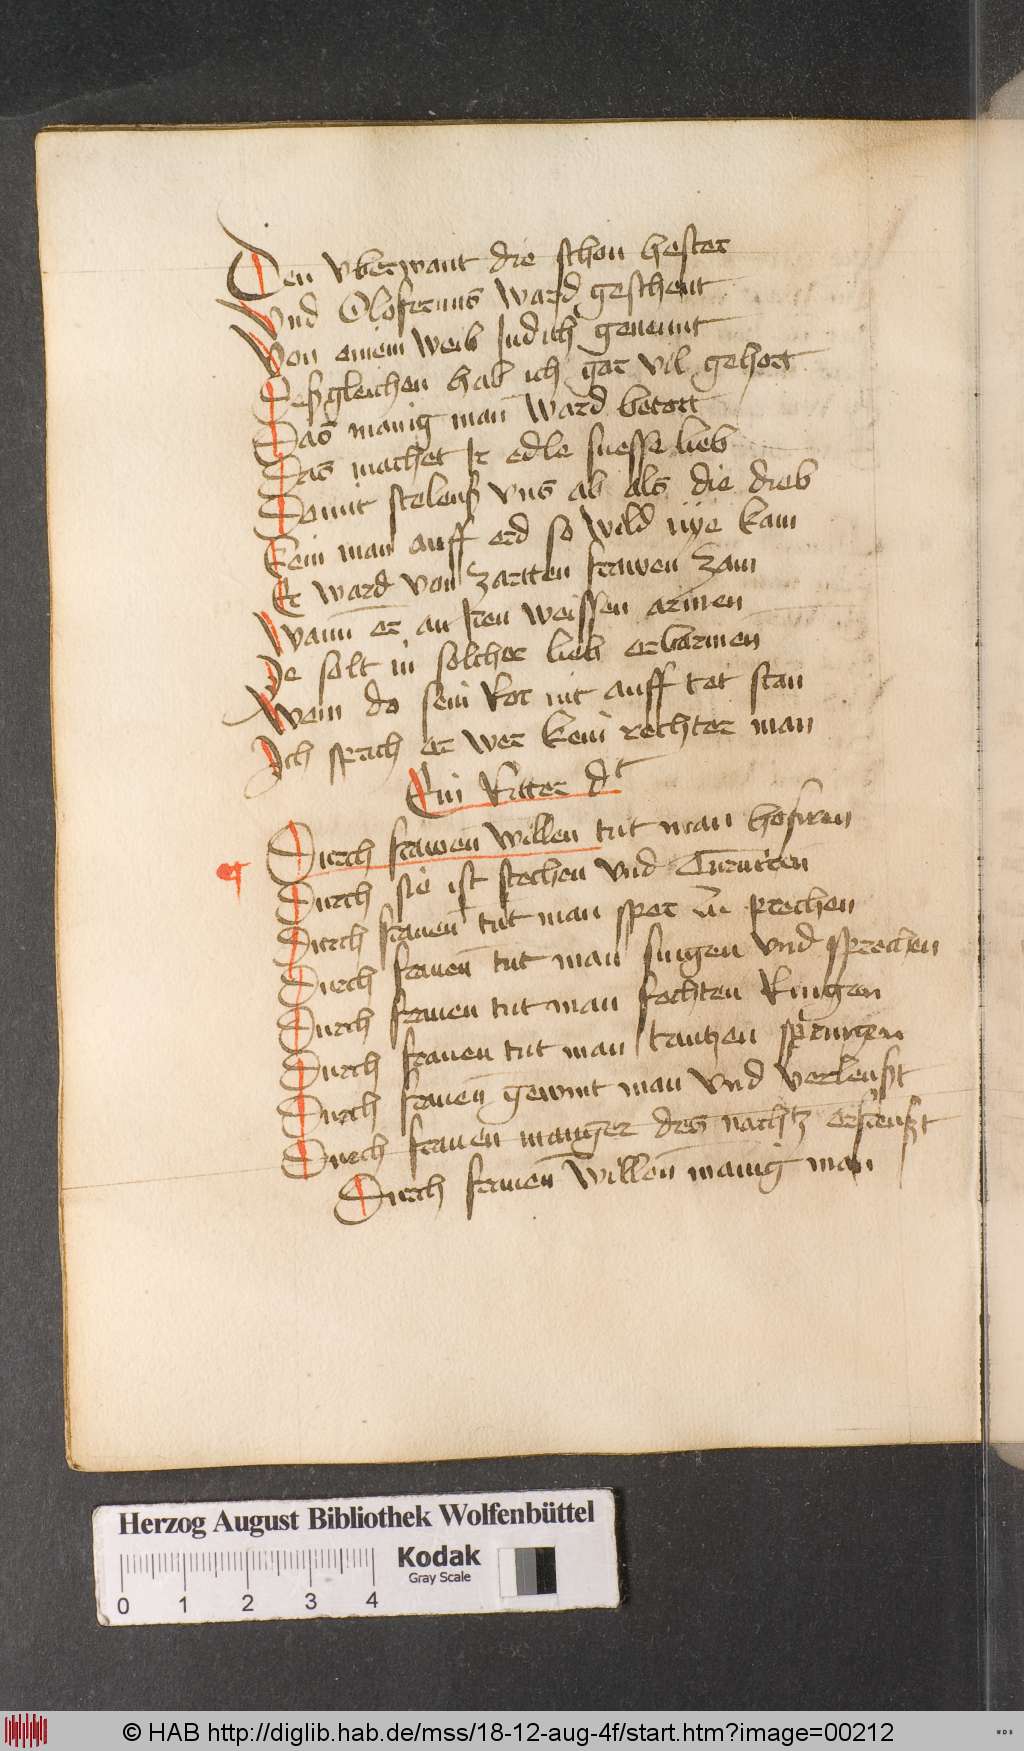 Den vberwant die schon hester
Vnd Olofernus ward geschent
Von einem weib Judich genennt
Desgleichen hab ich gar vil gehort
Das manig man ward betort
Das machet Ir edle suesse lieb
Domit stelenß vns ab als die dieb
Kein man auff erd so wild nÿe kam
Er ward von zartten frawen zam
Wann er an Iren weissen armen
Je solt in solcher lieb erbarmen
Wem do sein nit auff tet stan
Ich sprich er wer kein rechter man
Ein Ritter dt
Durch frawen willen tut man hofiren
Durch sie ist stechen vnd Turniren
Durch frauen tut man sper prechen
Durch frauen tut man singen vnd sprechen
Durch frauen tut man fechten Ringen
Durch frauen tut man tantzen springen
Durch frauen gewint man vnd verleußt
Durch frauen manger des nachtz erfreußt
Durch frauen willen manig man
Herzog August Bibliothek Wolfenbüttel
Kodak
Gray Scale
0 1 2 3 4
© HAB http://diglib.hab.de/mss/18-12-aug-4f/start.htm?image=00212